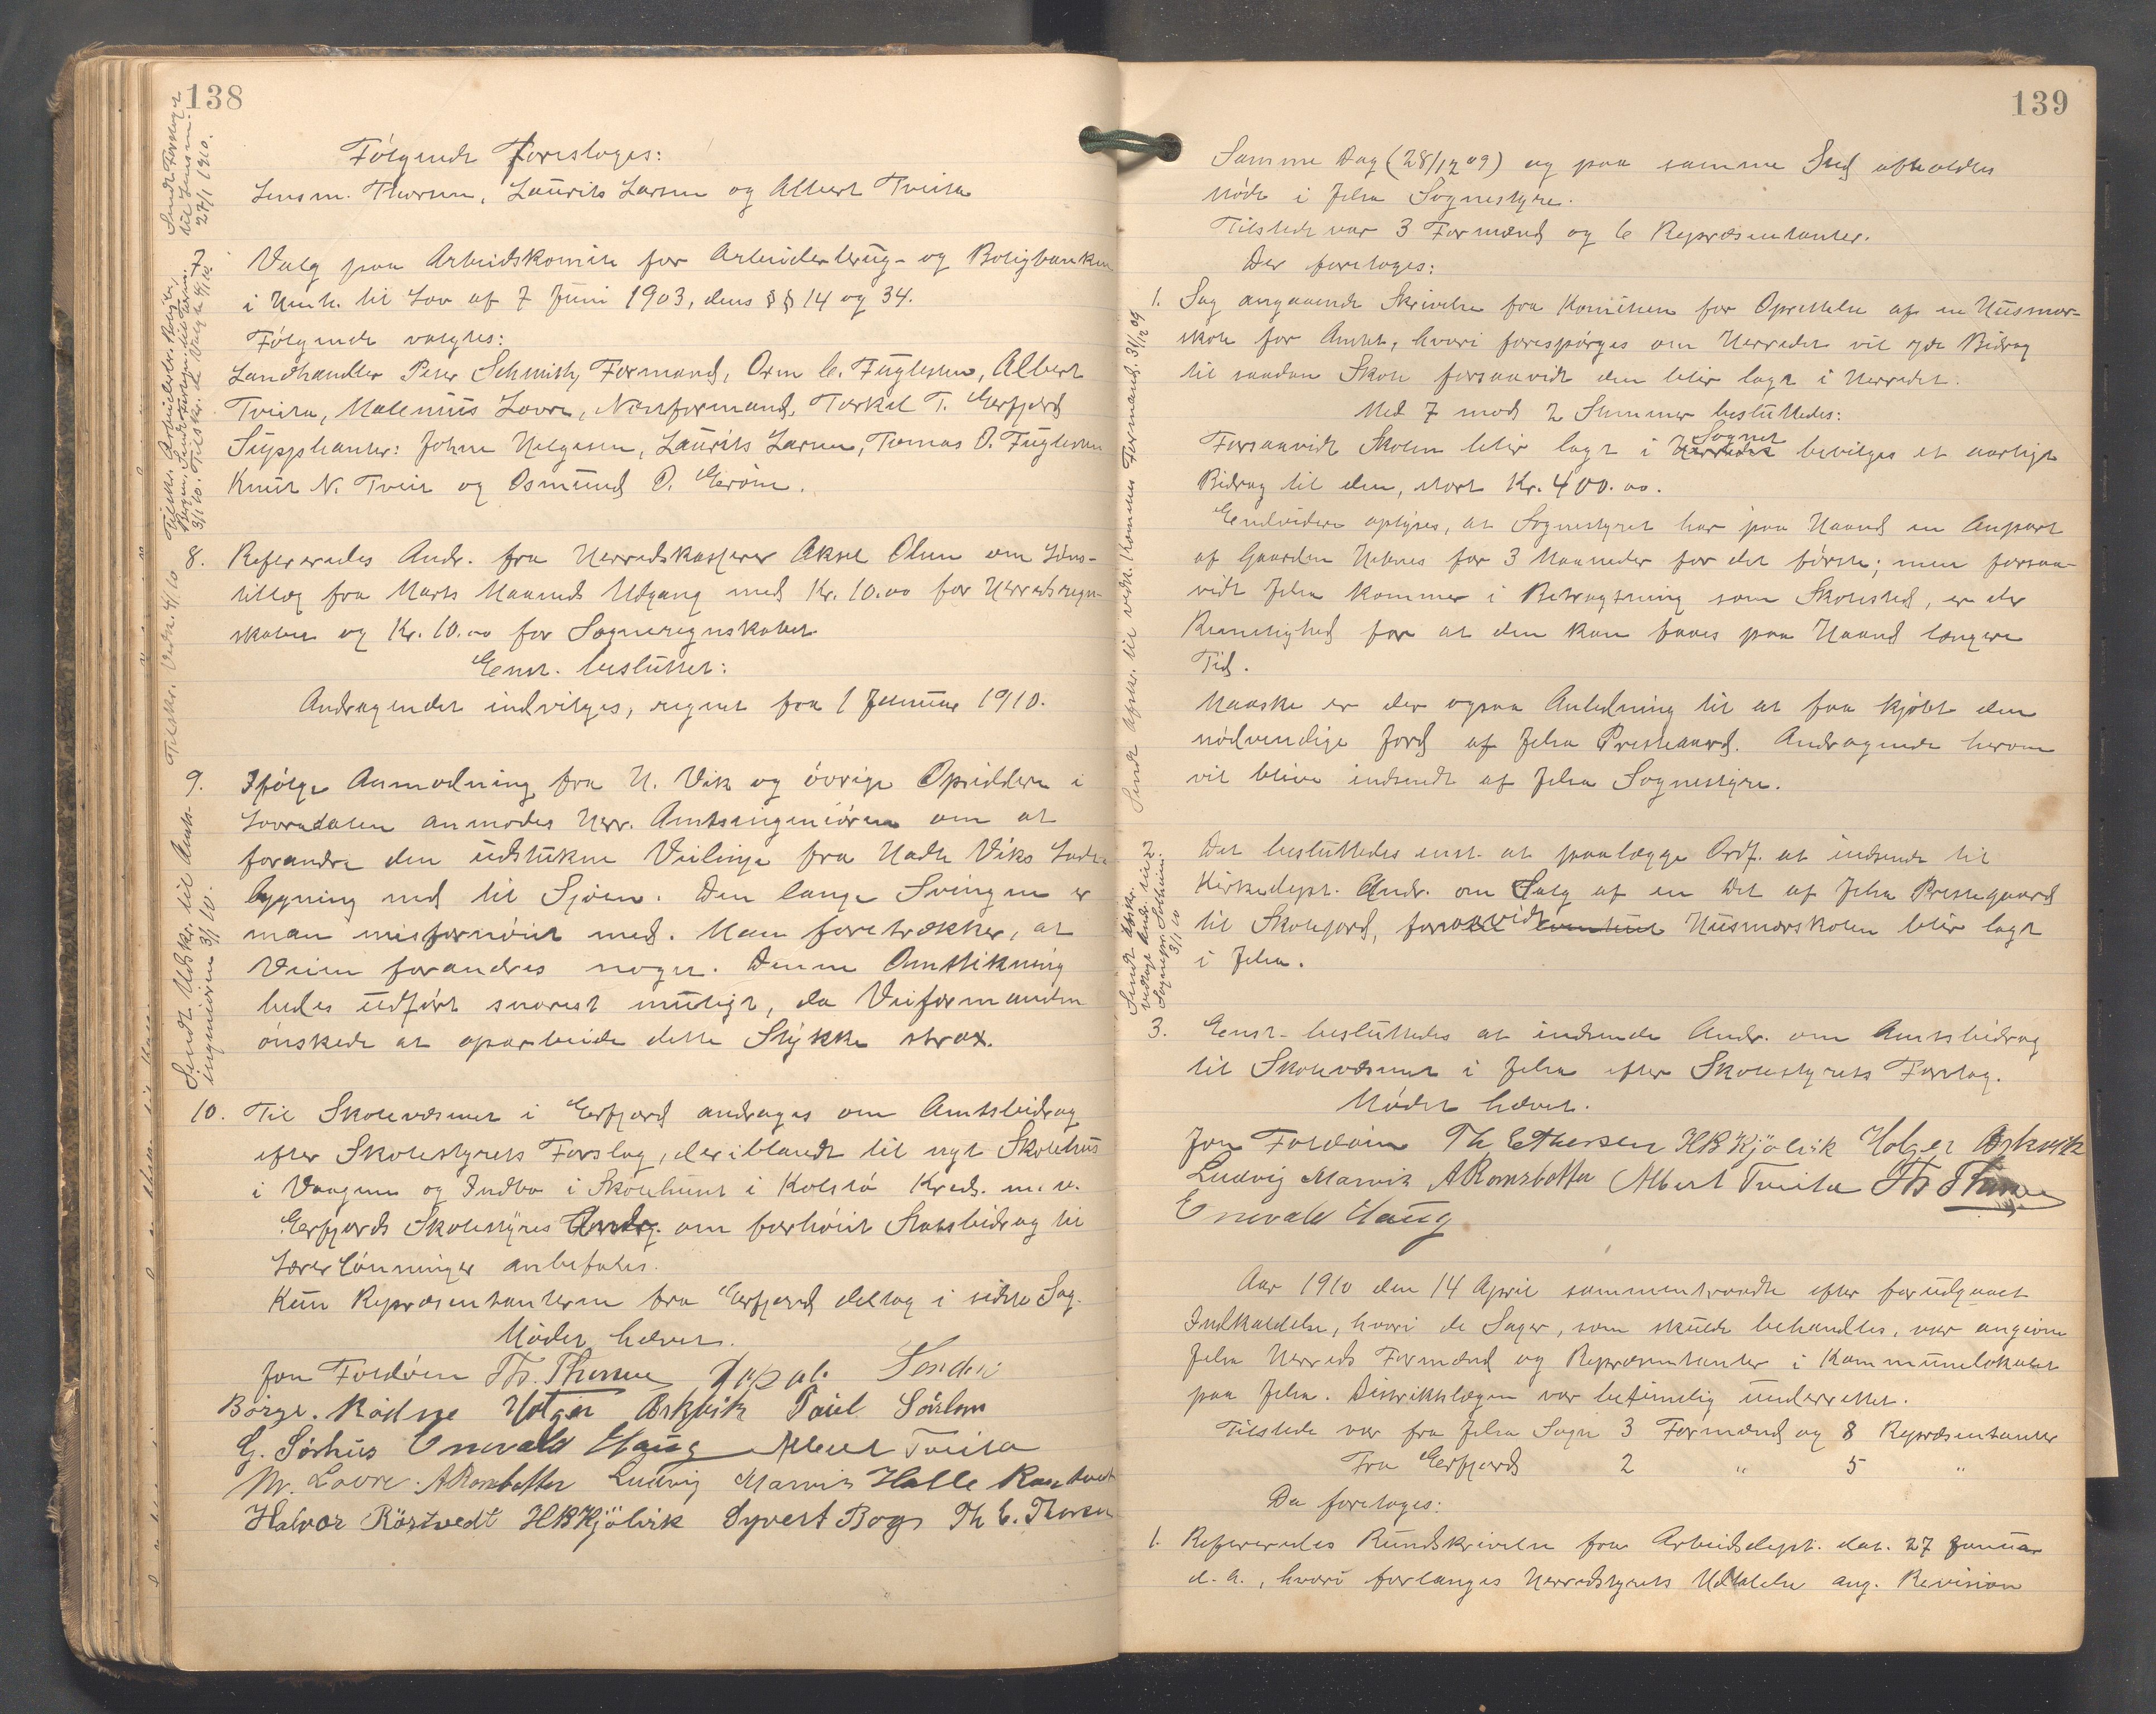 138
Følgende foresloges:
Lensm. Thorsen, Laurits Larsen og Albert Tveita
Sendt Forslaget
til Lensm.
27/1 1910.
7.
Valg paa Arbeidskomite for Arbeiderbrug- og Boligbanken
i Henh. til Lov af 7 Juni 1903, dens §§ 14 og 34.
Følgende valgtes:
Landhandler Peter Schmidt, Formand, Orm C. Fuglestein, Albert
Tveita, Malenius Lovra, Næstformand, Torkel T. Eerfjord
Supplianter: Johne Helgesen, Laurits Larsen, Tomas O. Fuglestein
Knut N. Tveit og Osmund O. Gerøin.
8. Refereredes Andr. fra Herredskasserer Aksel Olsen om Løns-
tillæg fra Marts Maaneds Udgang med Kr. 10.00 for Herredsregn-
skabet og Kr. 10.00 for Sogneregnskabet
Eenst. besluttet:
Andragendet indvilges, regnet fra 1 Januar 1910.
Tilskr. Vedk. 4/1 10
9. Ifølge Anmodning fra H. Vik og øvrige Opsiddere i
Lovradalen anmodes Herr. Amtsingeniøren om at
forandre den udstukne Veilinje fra Hadle Viks Lade-
bygning ned til Sjøen. Den lange Svingen er
man misfornøiet med. Man foretrækker, at
Veien forandres noget. Denne Omstikning
bedes udført snarest muligt, da Veiformanden
ønskede at oparbeide dette Stykke strax.
Sendt Udskr. til Amts-
ingeniøren 3/1 10.
10. Til Skolevæsenet i Eerfjord andrages om Amtsbidrag
efter Skolestyrets Forslag, deriblandt til nyt Skolehus
i Vaagen og Indbo i Skolehuset i Kolstø Kreds. m. v.
Eerfjords Skolestyres Andrg. om forhøiet Statsbidrag til
Lærerlønninger anbefales.
Kun Repræsentanterne fra Eerfjord deltog i sidste Sag.
Mødet hævet.
Jon Foldøen Th. Thorsen
Børge. Rødne Holger Arkvik Poul
G. Sørhus Enevald Haug Albert Tveita
M. Lovre. A Rombotten Ludvig Marvik Halle
Halvor Röstvedt HB Kjölvik Syvert Bogs Th C. Thorsen
139
Samme Dag (28/12 09) og paa samme Sted afholdtes
Møde i Jelsa Sognestyre.
Tilstede var 3 Formænd og 6 Repræsentanter.
Der foretoges:
1. Sag angaaende Skrivelse fra Komiteen for Oprettelse af en Husmor-
skole for Amtet, hvori forespørges om Herredet vil yde Bidrag
til saadan Skole forsaavidt den blir lagt i Herredet.
Med 7 mod 2 Stemmer besluttedes:
Forsaavidt Skolen blir lagt i Herredet Sognet bevilges et aarligt
Bidrag til den, stort Kr. 400.00.
Eendvidere oplyses, at Sognestyret har paa Haand en Anpart
af Gaarden Hebnes for 3 Maaneder for det første; men forsaa-
vidt Jelsa kommer i Betragtning som Skolested, er der
Rimelighed for at den kan faaes paa Haand længere
Tid.
Maaske er der ogsaa Anledning til at faa kjøbt den
nødvendige Jord af Jelsa Prestegaard. Andragende herom
vil blive indsendt af Jelsa Sognestyre.
Sendt Afskr. til vedk. Komites Formand. 31/12 09
2. Det besluttedes enst. at paalægge Ordf. at indsende til
Kirkedept. Andr. om Salg af en Del af Jelsa Prestegaard
til Skolejord, forsaavidt eventuel Husmorskolen blir lagt
i Jelsa.
3. Eenst. besluttedes at indsende Andr. om Amtsbidrag
til Skolevæsenet i Jelsa efter Skolestyrets Forslag.
Mødet hævet.
Jon Foldøen Th C Thorsen HB Kjölvik Holger Arkvik
Ludvig Marvik A Rombotten Albert Tveita Th Thorsen
Enevald Haug
Aar 1910 den 14 April sammentraadte efter forudgaaet
Indkaldelse, hvori de Sager, som skulde behandles, var angivne
Jelsa Herreds Formænd og Repræsentanter i Kommunelokalet
paa Jelsa. Distriktslægen var betimelig underrettet.
Tilstede var fra Jelsa Sogn 3 Formænd og 8 Repræsentanter
Fra Eerfjord 2 " 5 "
Da foretoges:
1. Refereredes Rundskrivelse fra Arbeidsdept. dat. 27 Januar
d. A., hvori forlanges Herredstyrets Udtalelse ang. Revision